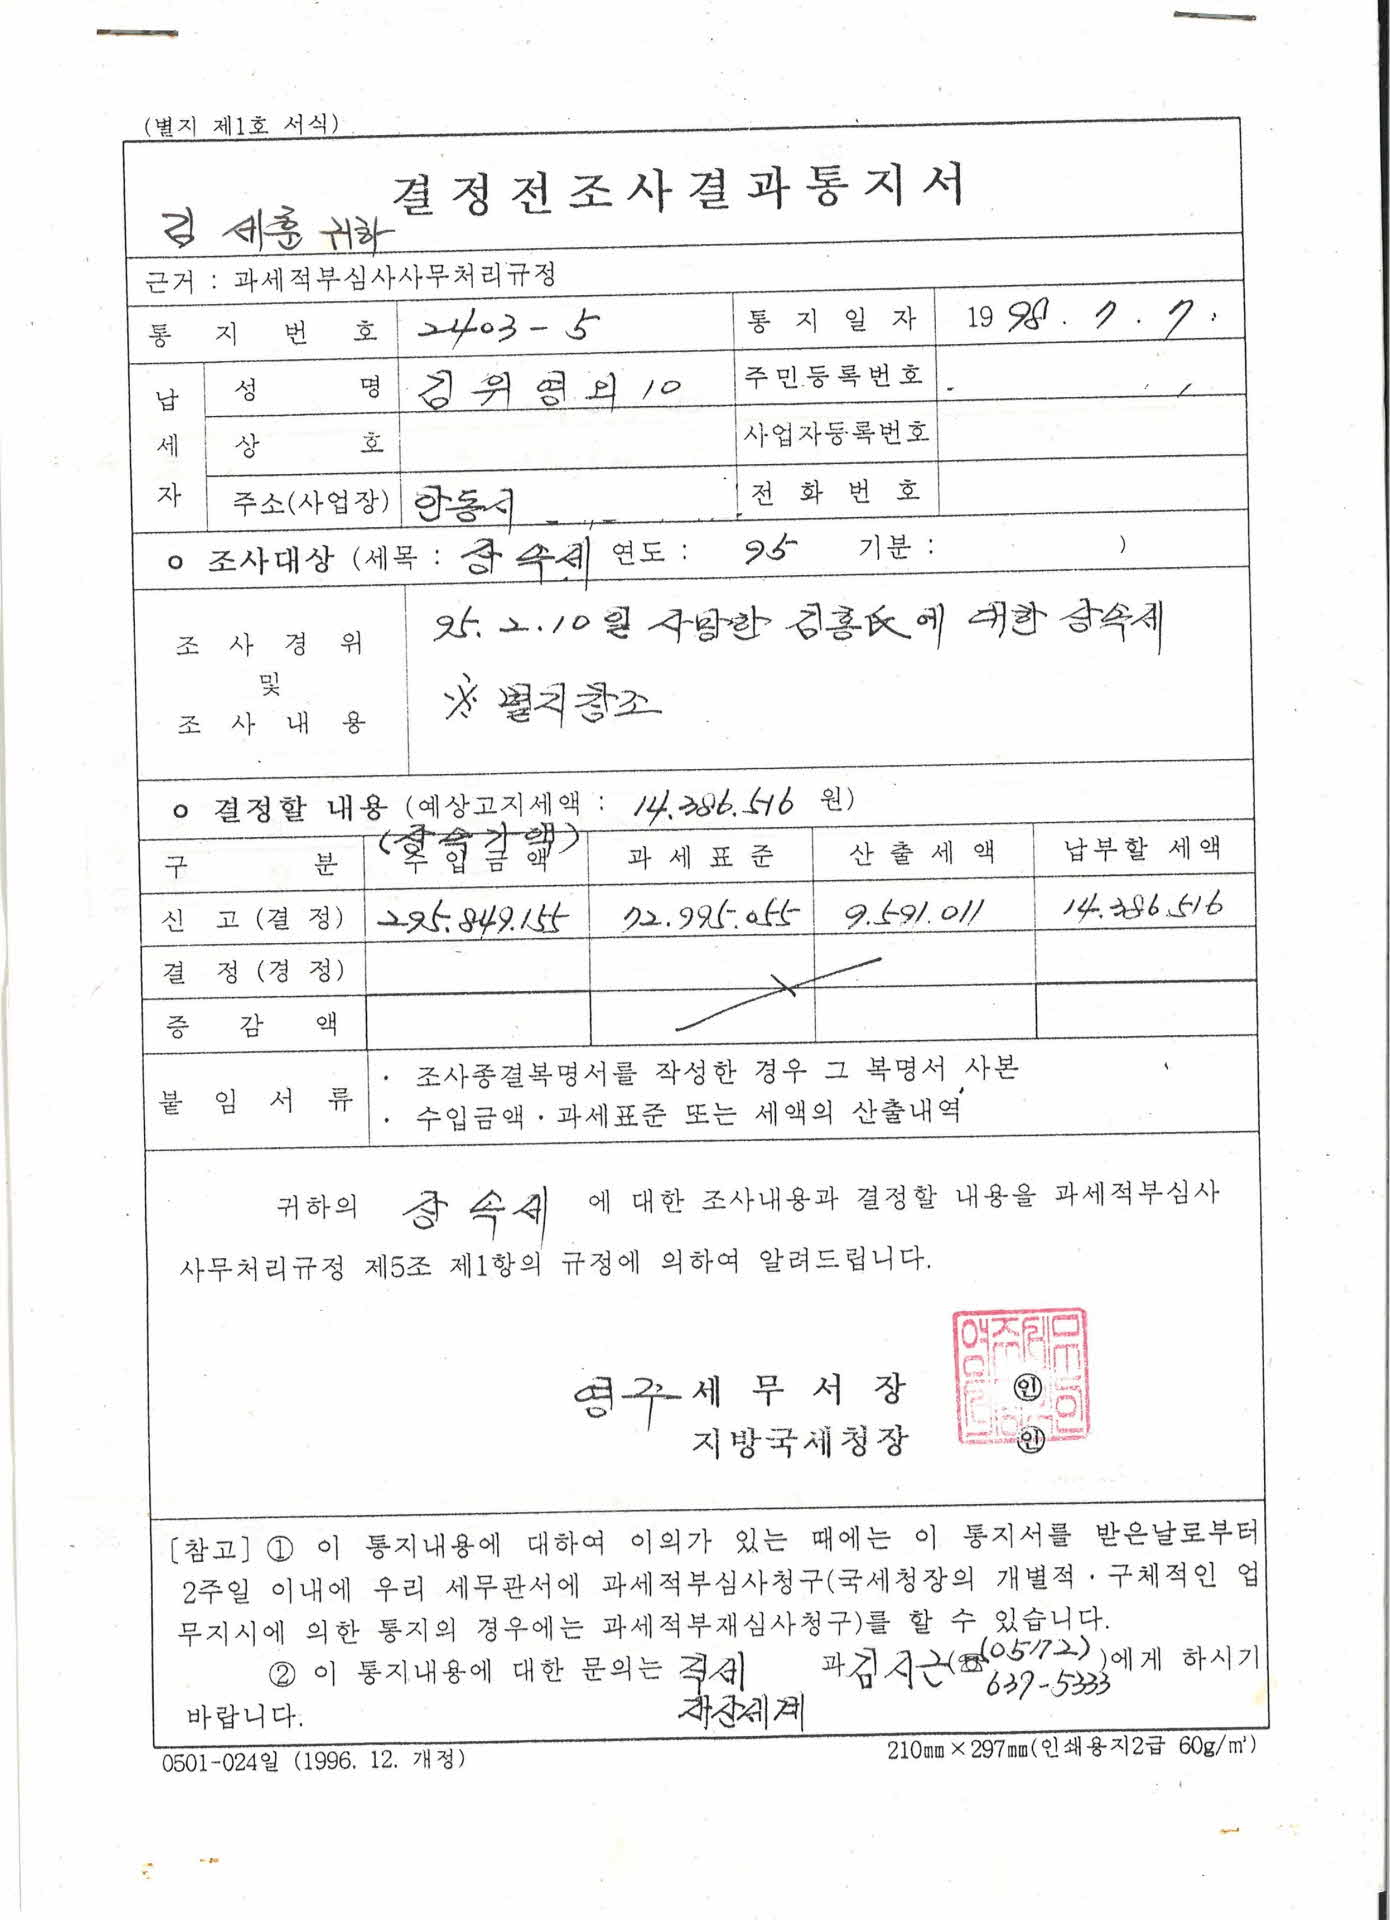 (별지 제1호 서식)
결정전조사결과통지서
김 세훈 귀하
근거 : 과세적부심사사무처리규정
통 지 번 호 2403-5 통 지 일 자 1998. 7. 7.
납 세 자
성 명 김 위 영 외 10 주민등록번호
상 호 사업자등록번호
주소(사업장) 안동시 전 화 번 호
ㅇ 조사대상 (세목 : 상속세 연도 : 95 기분 : )
조 사 경 위 및 조 사 내 용
95. 2. 10일 사망한 김홍氏에 대한 상속세
※ 별지참조
ㅇ 결정할 내용 (예상고지세액 : 14.386.516 원)
(상속가액)
구 분 수입금액 과 세 표 준 산 출 세 액 납부할 세액
신 고 (결 정) 295.849.155 72.995.055 9.591.011 14.386.516
결 정 (경 정)
증 감 액
붙 임 서 류
· 조사종결복명서를 작성한 경우 그 복명서 사본
· 수입금액 · 과세표준 또는 세액의 산출내역
귀하의 상속세 에 대한 조사내용과 결정할 내용을 과세적부심사
사무처리규정 제5조 제1항의 규정에 의하여 알려드립니다.
영주 세 무 서 장 ㊞
지방국세청장 ㊞
[참고] ① 이 통지내용에 대하여 이의가 있는 때에는 이 통지서를 받은날로부터
2주일 이내에 우리 세무관서에 과세적부심사청구(국세청장의 개별적 · 구체적인 업
무지시에 의한 통지의 경우에는 과세적부재심사청구)를 할 수 있습니다.
② 이 통지내용에 대한 문의는 직세 과 김시근(☎(0572) 637-5333)에게 하시기
재산세계
바랍니다.
0501-024일 (1996. 12. 개정) 210㎜×297㎜(인쇄용지2급 60g/㎡)